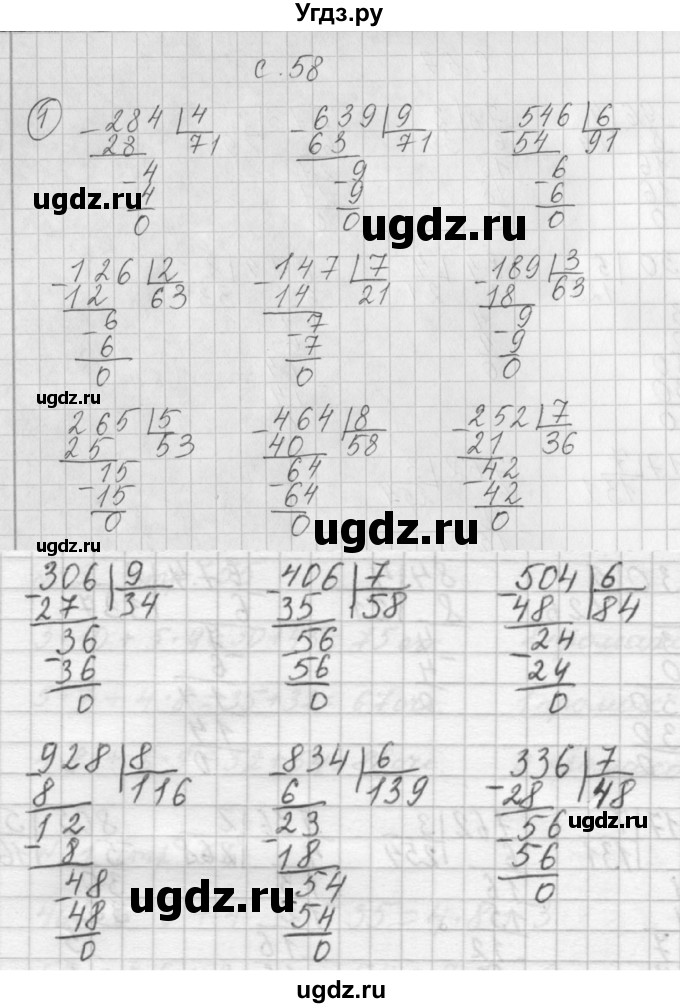 Угдз.ру
с. 58
1
-284 |4   -639 |9   -546 |6
28 71   63 71   54 91
-4   9   6
4   -9   -6
0   0   0
-126 |2   -147 |7   -189 |3
12 63   14 21   18 63
-6   7   9
6   -7   -9
0   0   0
265 |5   -464 |8   -252 |7
25 53   40 58   21 36
15   64   -42
-15   -64   42
0   0   0
-306 |9   -406 |7   -504 |6
27 34   35 58   48 84
-36   -56   -24
36   56   24
0   0   0
-928 |8   -834 |6   336 |7
8 116   6 139   -28 48
12   -23   -56
-8   18   56
48   -54   0
-48   54
0   0
ugdz.ru
ugdz.ru
ugdz.ru
ugdz.ru
ugdz.ru
ugdz.ru
ugdz.ru
ugdz.ru
ugdz.ru